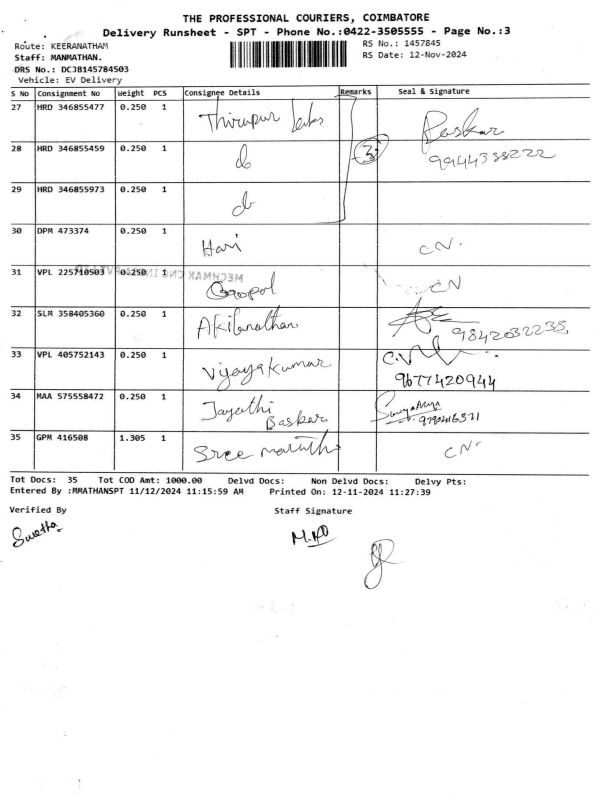 THE PROFESSIONAL COURIERS, COIMBATORE
Delivery Runsheet - SPT - Phone No.:0422-3505555 - Page No.:3
Route: KEERANATHAM
RS No.: 1457845
Staff: MANMATHAN.
RS Date: 12-Nov-2024
DRS No.: DCJB145784503
Vehicle: EV Delivery
S No Consignment No Weight PCS Consignee Details Remarks Seal & Signature
27 HRD 346855477 0.250 1 Thirupur Baskar
28 HRD 346855459 0.250 1 do 3 9944388222
29 HRD 346855973 0.250 1 do
30 DPM 473374 0.250 1 Hari C.N.
31 VPL 225710503 0.250 1 Gopal CN
MECHMAX CNC
32 SLM 358405360 0.250 1 Akilanathan 9842032235
33 VPL 405752143 0.250 1 Vijayakumar 9677420944
34 MAA 575558472 0.250 1 Jayathi Baskar
35 GPM 416508 1.305 1 Sree C.N.
Tot Docs: 35 Tot COD Amt: 1000.00 Delvd Docs: Non Delvd Docs: Delvy Pts:
Entered By :MMATHANSPT 11/12/2024 11:15:59 AM Printed On: 12-11-2024 11:27:39
Verified By Staff Signature
Swetha